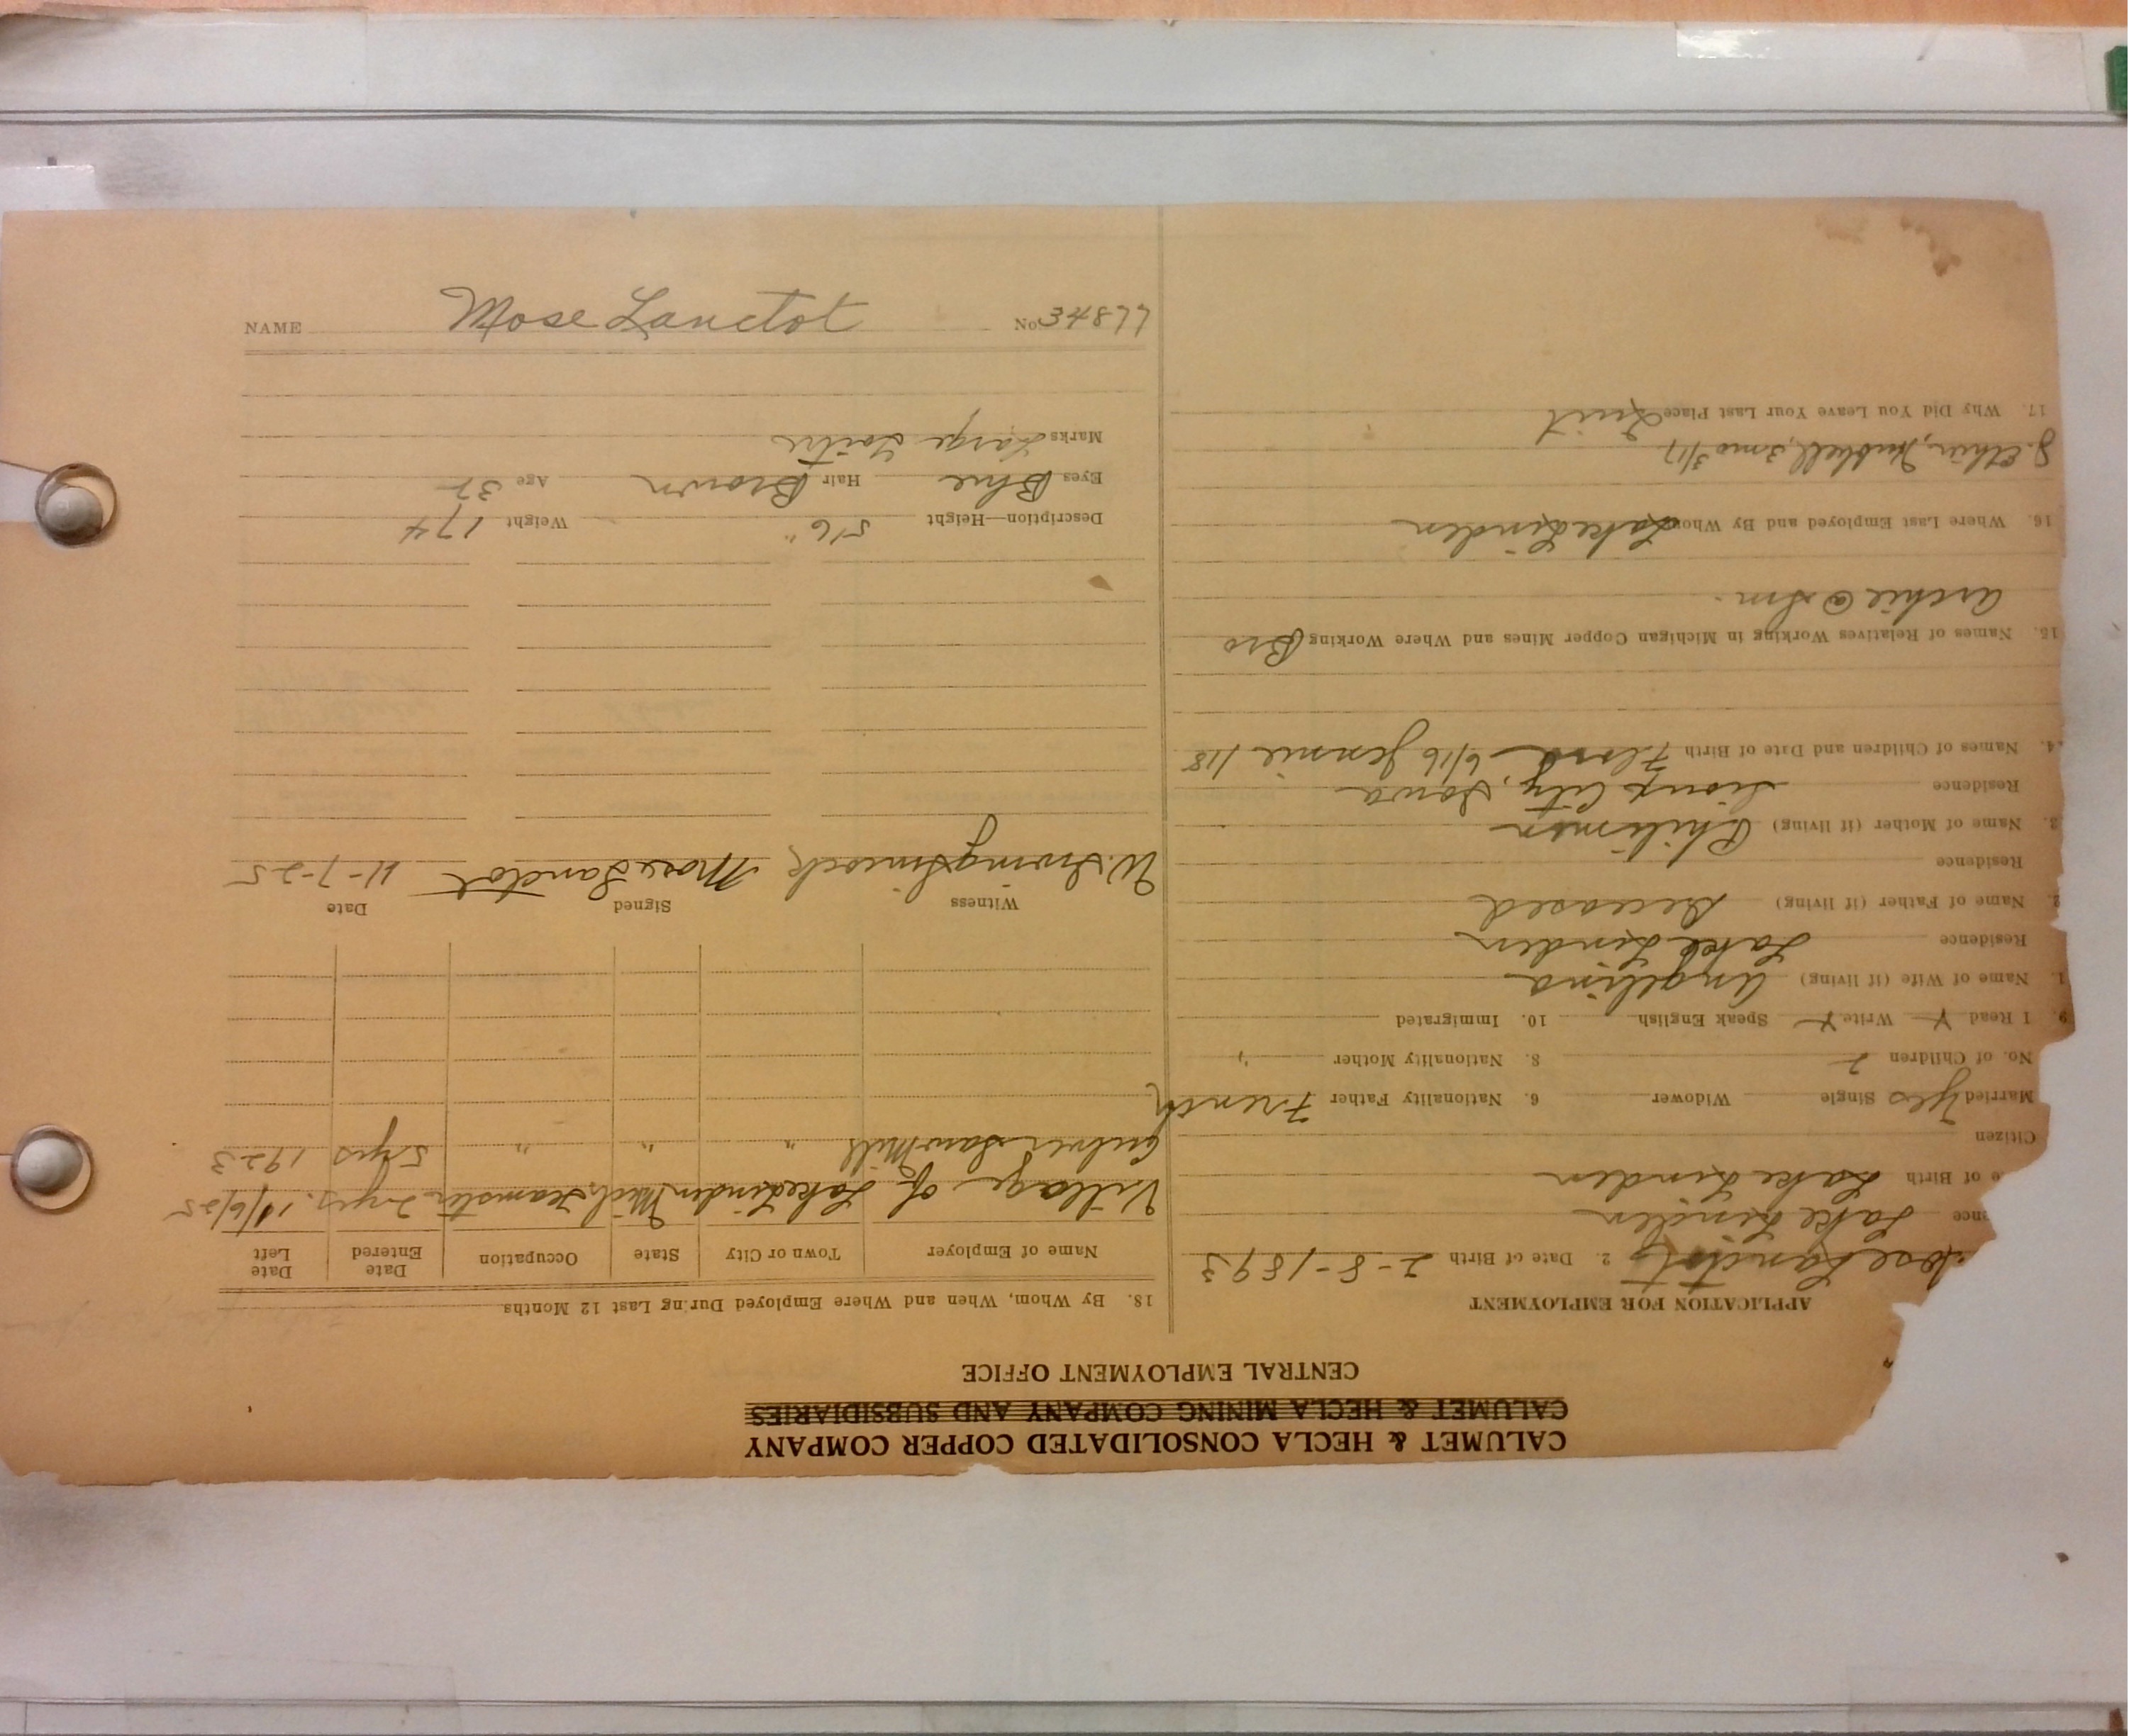 CALUMET & HECLA CONSOLIDATED COPPER COMPANY
CALUMET & HECLA MINING COMPANY AND SUBSIDIARIES
CENTRAL EMPLOYMENT OFFICE
APPLICATION FOR EMPLOYMENT
ose Lanctot 2. Date of Birth 2-8-1893
ence Lake Linden
e of Birth Lake Linden
Citizen
Married Yes Single Widower 6. Nationality Father French
No. of Children 2 8. Nationality Mother "
9. I Read Y Write Y Speak English 10. Immigrated
1. Name of Wife (if living) Angelina
Residence Lake Linden
2. Name of Father (if living) Deceased
Residence
3. Name of Mother (if living) Philimen
Residence Sioux City, Iowa
4. Names of Children and Date of Birth Flora 6/16 Jennie 1/18
15. Names of Relatives Working in Michigan Copper Mines and Where Working Bro
Archie @ Sm.
16. Where Last Employed and By Whom Lake Linden
Hubbell, 3 mo 3/17
17. Why Did You Leave Your Last Place Quit
18. By Whom, When and Where Employed During Last 12 Months
Name of Employer Town or City State Occupation Date Entered Date Left
Village of Lake Linden Mich. Teamster 2 yrs. 11/6/25
Saw Mill " " " 5 yrs 1923
Witness Signed Date
W. Irving Mose Lanctot 11-7-25
Description—Height 5'6" Weight 174
Eyes Blue Hair Brown Age 32
Marks Large Goitre
NAME Mose Lanctot No. 34877